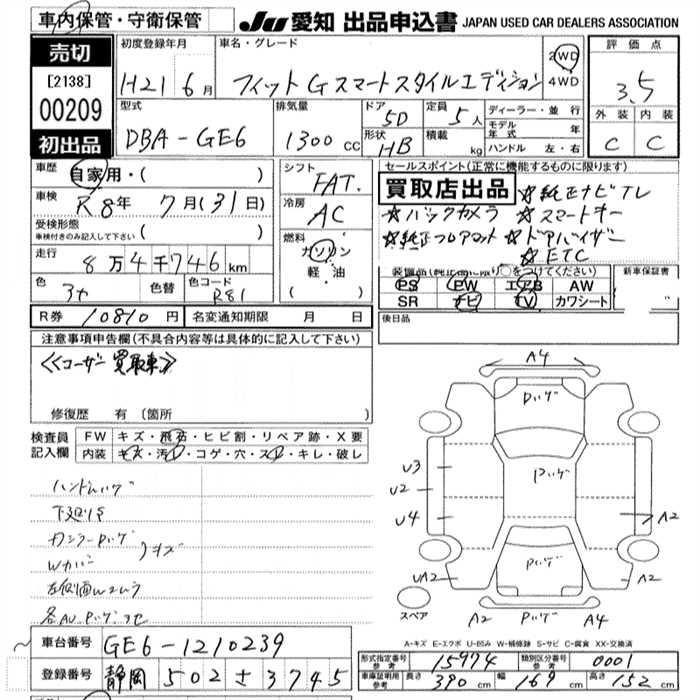 車内保管・守衛保管
JU 愛知 出品申込書 JAPAN USED CAR DEALERS ASSOCIATION
売切
[2138]
00209
初出品
初度登録年月 車名・グレード
H21 6月 フィット G スマートスタイルエディション
2WD
4WD
評価点
3.5
外装 内装
C C
型式 排気量 ドア 定員 ディーラー・並行
DBA-GE6 1300cc 5D 5人
形状 HB 積載 kg
モデル年式 年
ハンドル 左・右
車歴 自家用・( )
車検 R8年 7月(31日)
受検形態
車検付きのみ記入して下さい ( )
走行
8万4千746km
色 色替 色コード
R81
シフト
FAT.
冷房
AC
燃料
ガソリン
軽・油
( )
セールスポイント(正常に機能するものに限ります)
買取店出品 ☆純正ナビTV
☆バックカメラ ☆スマートキー
☆純正フロアマット ☆ドアバイザー
☆ETC
装備品(純正品に限り○をつけてください)
PS PW エアB AW
SR ナビ TV カワシート
新車保証書
後日品
R券 10810円 名変通知期限 月 日
注意事項申告欄(不具合内容等は具体的に記入して下さい)
≪ユーザー買取車≫
修復歴 有(箇所
検査員記入欄
FW キズ・飛石・ヒビ割・リペア跡・X要
内装 キズ・汚レ・コゲ・穴・スレ・キレ・破レ
下廻りS
キズ
A4
U3
U2
U4
UA2
A2
A2
A2
A4
スペア
A-キズ E-エクボ U-凹み W-補修跡 S-サビ C-腐食 XX-交換済
車台番号 GE6-1210239
登録番号 静岡 502 さ 3745
形式指定番号 参考 15974 類別区分番号 参考 0001
車庫証明用 参考 長さ 390cm 幅 169cm 高さ 152cm